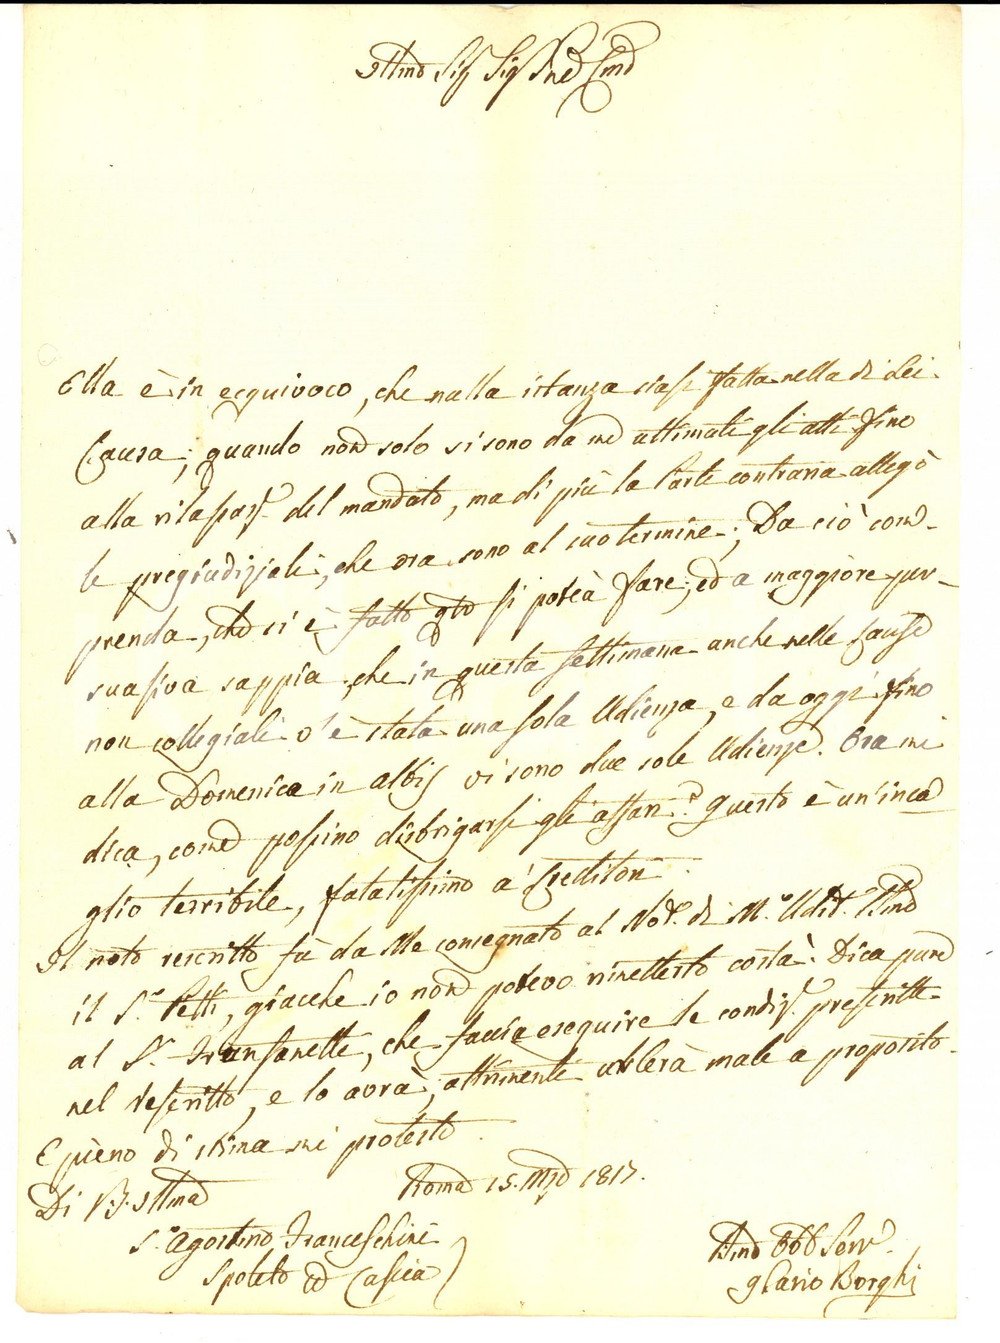 Illmo Sig Sig Pne Cmo
Ella è in ecquivoco, che nulla istanza siasi fatta nella di Lei
Causa; quando non solo si sono da me ultimati gli atti fino
alla rilass. del mandato, ma di più la Parte contraria allegò
le pregiudiziali, che ora sono al suo termine; Da ciò com-
prenda, che si è fatto qto si potea fare; ed a maggiore per-
suasiva sappia che in questa settimana anche nelle Cause
non collegiali v'è stata una sola Udienza, e da oggi fino
alla Domenica in albis vi sono due sole Udienze. Ora mi
dica, come possino disbrigarsi gli affari? Questo è un'inca
glio terribile, fatalissimo a' Creditori.
Il noto rescritto fù da Me consegnato al Not. di M. Udit.
il S. Petti, giacche io non potevo rimetterlo costà. Dica pure
al S. che faccia eseguire le condiz. prescritte
nel rescritto, e lo avrà, altrimenti urlerà male a proposito.
E pieno di stima mi protesto
Di V. S. Illma Roma 15. Mzo 1817.
S. Agostino Franceschini
Spoleto Cascia
Dmo Obb Serv.
Ilario Borghi